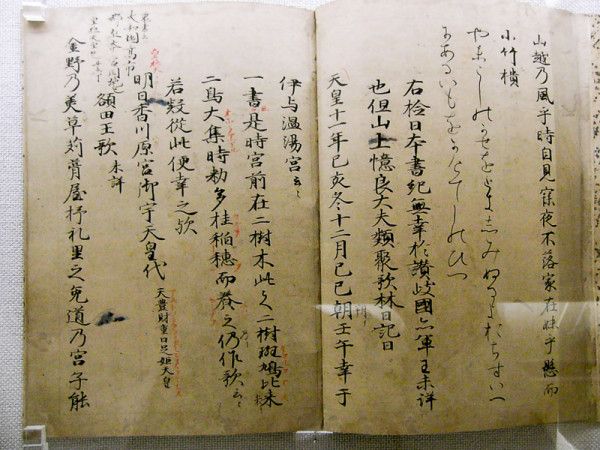 山越乃風乎時自見寐夜不落家在妹乎懸而
小竹樻
やまこしのかせをときしみぬるよおちすいへ
にあるいもをかけてしのひつ
右檢日本書紀無幸於讚岐國亦軍王未詳
也但山上憶良大夫類聚歌林曰記曰
天皇十一年己亥冬十二月己巳朔壬午幸于
伊与温湯宮云々
一書是時宮前在二樹木此之二樹斑鳩比米
二鳥大集時勅多桂稲穂而養之仍作歌云々
若疑從此便幸之歟
明日香川原宮御宇天皇代 天豊財重日足姫天皇
額田王歌 未詳
金野乃美草苅葺屋杼礼里之兎道乃宮子能